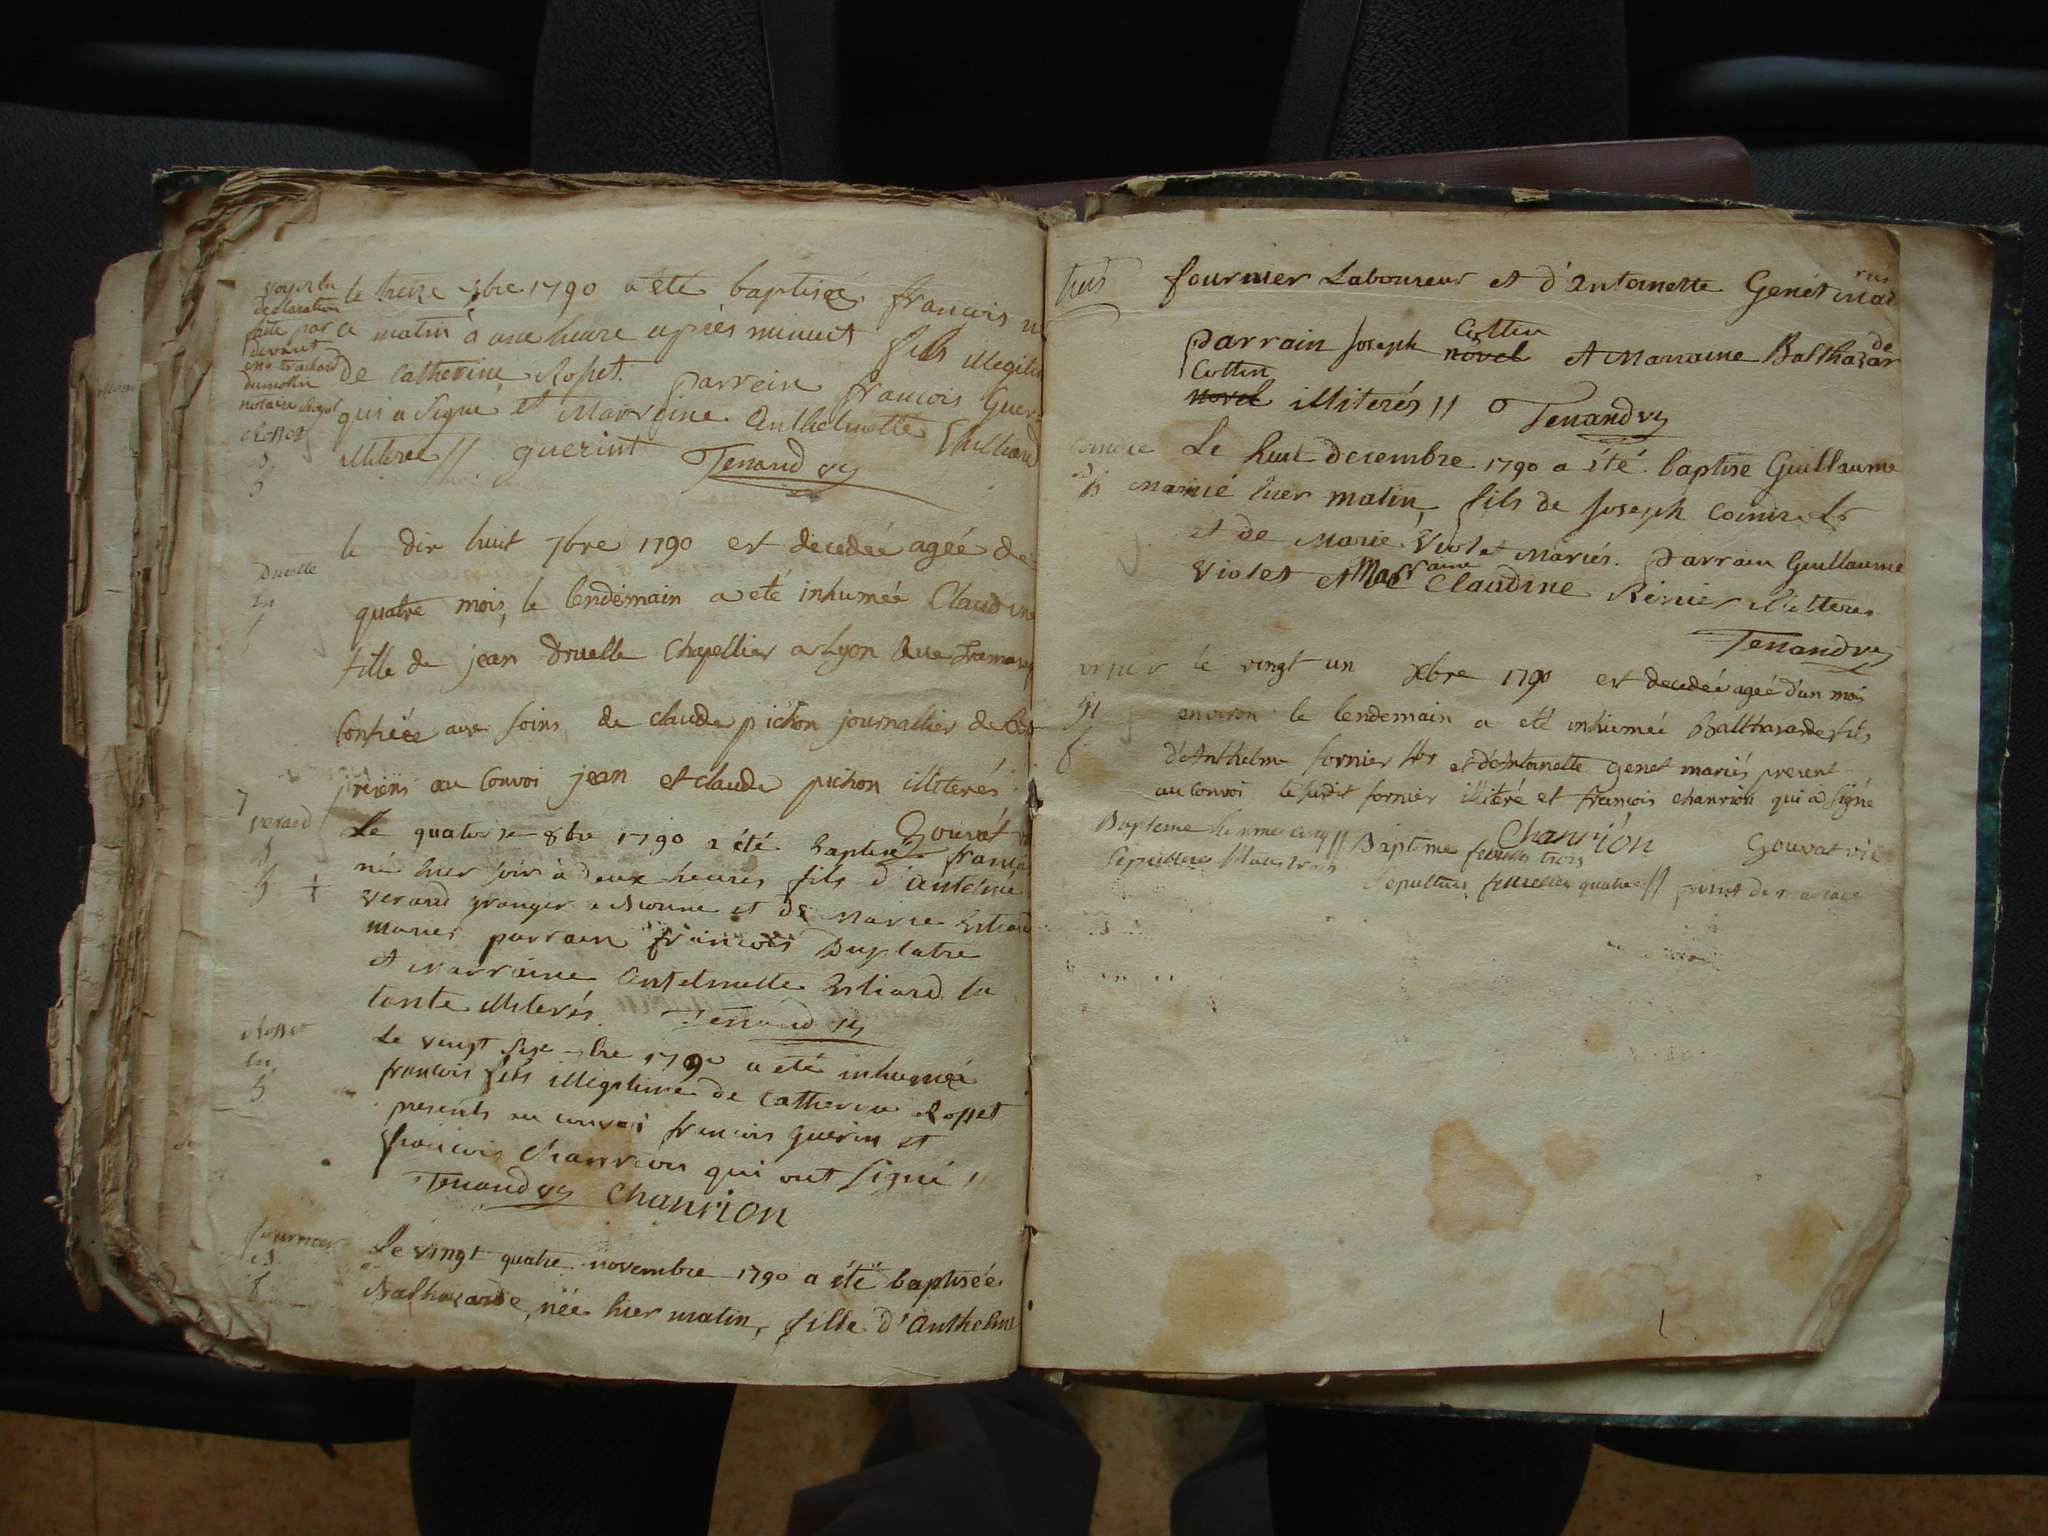 voyez la
declaration
faite par
devant
dumolin
notaire
Rosset
le treize 7bre 1790 a été baptisé françois né
ce matin à une heure après minuit fils illegiti
de Catherine Rosset. Parrein françois Guer
qui a signé et Marreine Anthelmette
illitéré // guerint Tenand vic
Druelle
le dix huit 7bre 1790 est decedée agée de
quatre mois, le lendemain a été inhumée Claudine
fille de jean Druelle Chapellier a Lyon Rue
Confiée aux soins de claude pichon journallier
presens au Convoi jean et claude pichon illiterés
Gouvat
verand
Le quatorze 8bre 1790 a été baptisé françois
né hier soir à deux heures fils d'antelme
verand granger a et de Marie Estiard
mariés parrain françois Duplatre
et Marraine antelmette Estiard sa
tante illiterés. Tenand vic
Rosset
le vingt 1790 a été inhumé
françois fils illigitime de Catherine Rosset
presents au convoi françois Guerin et
françois Chanrion qui ont signé //
Tenand vic Chanrion
fournier
Le vingt quatre novembre 1790 a été baptisée
Balthazarde, née hier matin, fille d'Anthelme
fournier Laboureur et d'Antoinette Genet mariés
Cottin
parrain Joseph novel et Marraine Balthazarde
Cottin
novel illiterés // Tenand vic
Le huit decembre 1790 a été baptisé Guillaume
né hier matin, fils de Joseph
et de Marie Violet Mariés. Parrain Guillaume
Violet et Marraine Claudine Renier illiterés
Tenand vic
le vingt un Xbre 1790 est decedée agée d'un mois
environ le lendemain a été inhumée Balthazarde fille
d'Anthelme fornier et d'Antoinette Genet mariés present
au Convoi le susdit fornier illitéré et françois chanrion qui a signé
Chanrion Gouvat vic
Bapteme hommes cinq // Bapteme femmes trois
Sepulture Males trois Sepultures femelles quatre // point de mariage